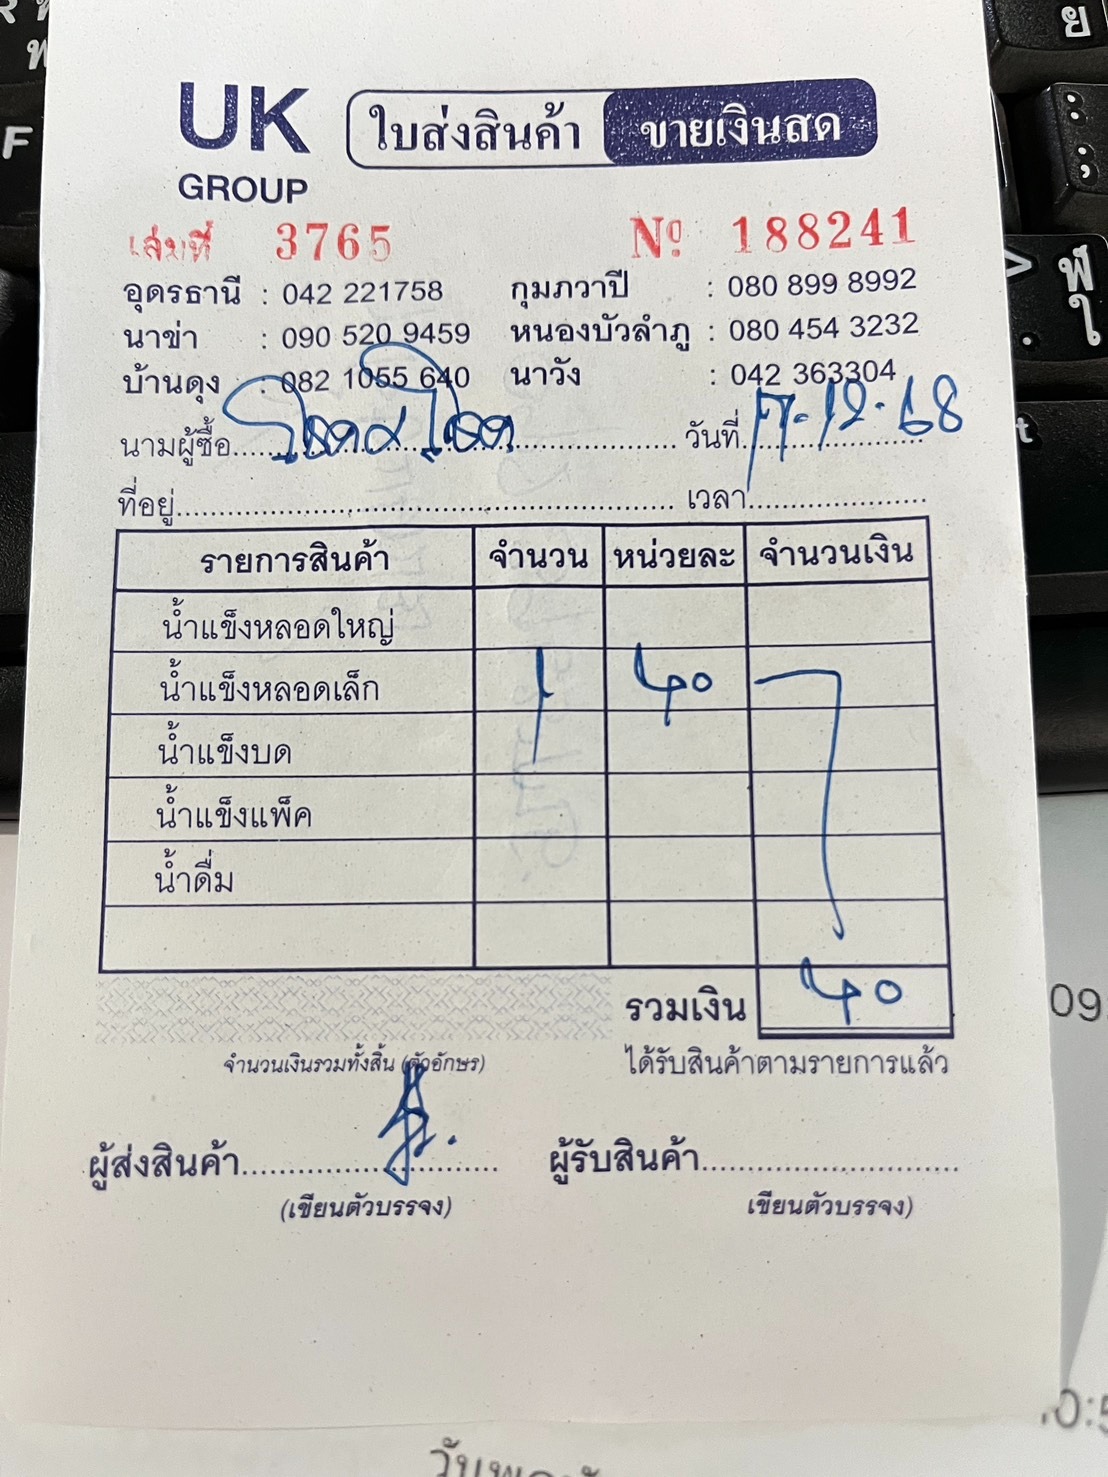 UK GROUP
ใบส่งสินค้า ขายเงินสด
เล่มที่ 3765 Nº 188241
อุดรธานี : 042 221758 กุมภวาปี : 080 899 8992
นาข่า : 090 520 9459 หนองบัวลำภู : 080 454 3232
บ้านดุง : 082 1055 640 นาวัง : 042 363304
นามผู้ซื้อ วันที่ 17-12-68
ที่อยู่ เวลา
รายการสินค้า จำนวน หน่วยละ จำนวนเงิน
น้ำแข็งหลอดใหญ่
น้ำแข็งหลอดเล็ก 1 40
น้ำแข็งบด
น้ำแข็งแพ็ค
น้ำดื่ม
รวมเงิน 40
จำนวนเงินรวมทั้งสิ้น (ตัวอักษร) ได้รับสินค้าตามรายการแล้ว
ผู้ส่งสินค้า ผู้รับสินค้า
(เขียนตัวบรรจง) เขียนตัวบรรจง)